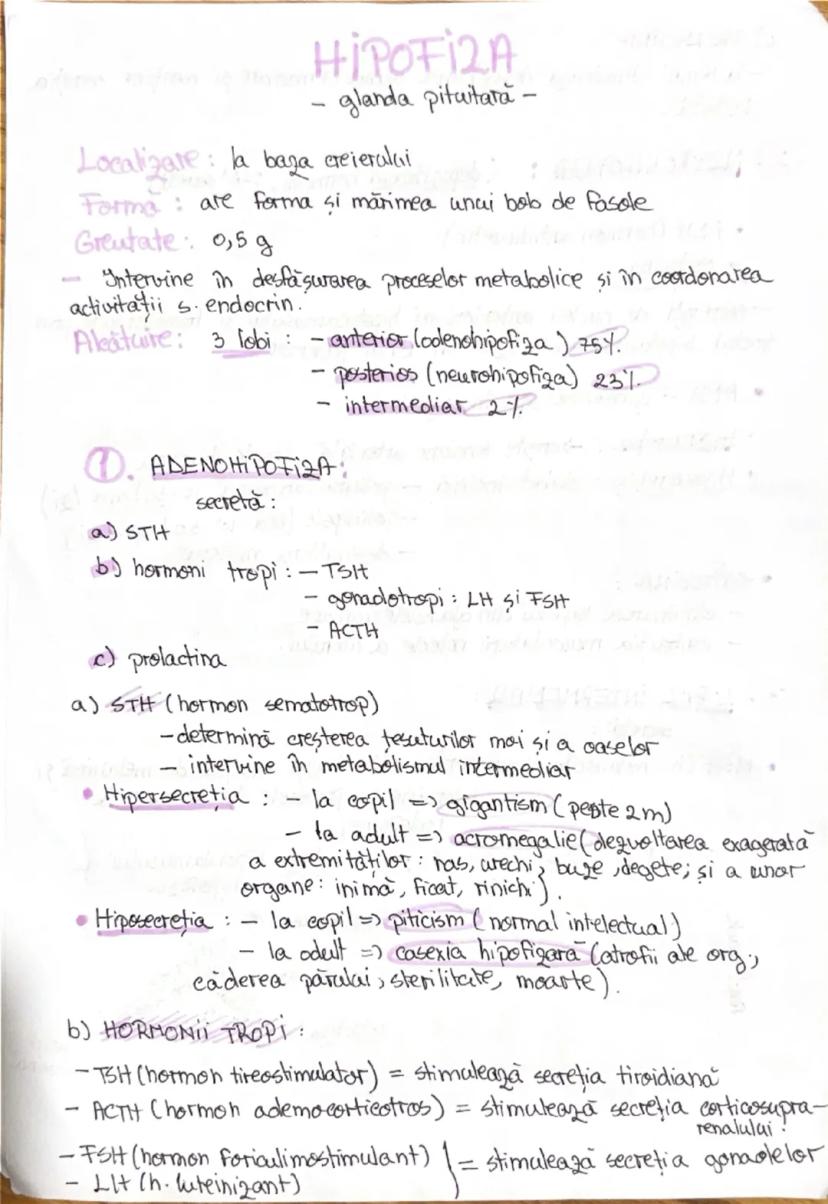 HIPOFIZA
- glanda pituitară -
Localizare : la baza creierului
Forma : are forma și mărimea unui bob de fasole
Greutate : 0,5 g
- Intervine în desfășurarea proceselor metabolice și în coordonarea
activității s. endocrin.
Alcătuire : 3 lobi : - anterior (adenohipofiza) 75%.
- posterios (neurohipofiza) 23%.
- intermediar 2%.
1. ADENOHIPOFIZA :
secretă :
a) STH
b) hormoni tropi : - TSH
- gonadotropi : LH și FSH
- ACTH
c) prolactina
a) STH (hormon sematotrop)
- determină creșterea țesuturilor moi și a oaselor
- intervine în metabolismul intermediar
• Hipersecreția : - la copil => gigantism (peste 2m)
- la adult => acromegalie (dezvoltarea exagerată
a extremităților : nas, urechi, buze, degete; și a unor
organe : inimă, ficat, rinichi).
• Hiposecreția : - la copil => piticism (normal intelectual)
- la adult => casexia hipofizară (atrofii ale org.,
căderea părului, sterilitate, moarte).
b) HORMONII TROPI :
- TSH (hormon tireostimulator) = stimulează secreția tiroidiană
- ACTH (hormon ademocorticotros) = stimulează secreția corticosupra-
renalului.
- FSH (hormon foriculimostimulant) } = stimulează secreția gonadelor
- LH (h. luteinizant)